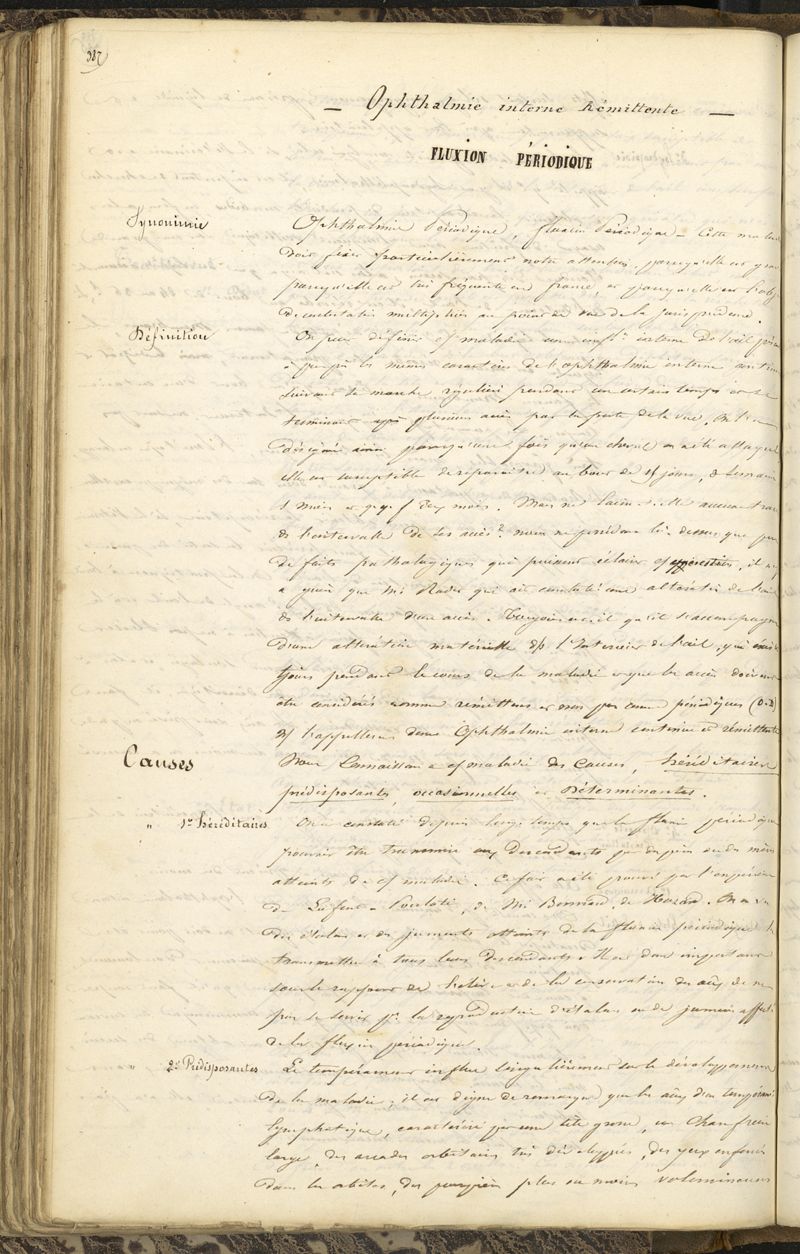 387
— Ophthalmie interne Rémittente —
FLUXION PÉRIODIQUE
Synonimie
Ophthalmie Périodique, fluxion Périodique — Cette
doit fixer particulièrement notre attention, parcequ'elle est
parcequ'elle est très fréquente en france, et parcequ'elle est
de contestations multipliées au point de vue de la jurisprudence.
Définition
On peut définir cf maladie une infl^on interne de l'œil
à peu près les mêmes caractères de l'ophthalmie interne
suivant sa marche régulière pendant un certain temps et se
terminant après plusieurs accès par la perte de la vue. On l'a
désignée ainsi parcequ'une fois qu'un cheval en a été attaqué
elle est susceptible de reparaître au bout de 15 jours, 3 semaines
1 mois et qq f deux mois. Mais ne laisse-t-elle aucune trace
ds l'intervalle de ses accès? nous ne possédons là-dessus que peu
de faits pathologiques qui puissent éclairer cf question, il n'y
a guère que Mr Rodet qui ait constaté une altération de l'œil
ds l'intervalle d'un accès. Toujours est-il qu'il s'accompagne
d'une altération matérielle ds l'Intérieur de l'œil, qui
tjours pendant le cours de la maladie et que les accès doivent
être considérés comme rémittens et non pas comme périodiques
et l'appellerons donc Ophthalmie interne continue et rémittente
Causes
Nous Connaissons à cf maladie des Causes, héréditaires
prédisposantes, occasionnelles et Déterminantes.
" 1° héréditaires
On a constaté depuis longtemps que la fluxion périodique
pouvait être transmise aux descendants par des pères ou des mères
atteints de cf maladie. Ce fait a été prouvé par l'expérience
de Lafosse à Toulouse, de Mr Bernard, de Huzard. On a vu
des étalons et des juments atteints de la fluxion périodique la
transmettre à tous leurs descendants. Il est donc important
sous le rapport de l'élève et de la conservation des anx de ne
pas se servir pr la reproduction d'étalons ou de jumens affectés
de la fluxion périodique.
" 2° Prédisposantes
Le tempérament influe singulièrement sur le développement
de la maladie; il est digne de remarque que les anx d'un tempérament
lymphatique, caractérisé par une tête grosse, un chanfrein
large, des arcades orbitaires très développées, des yeux enfoncés
dans les orbites, des paupières plus ou moins volumineuses